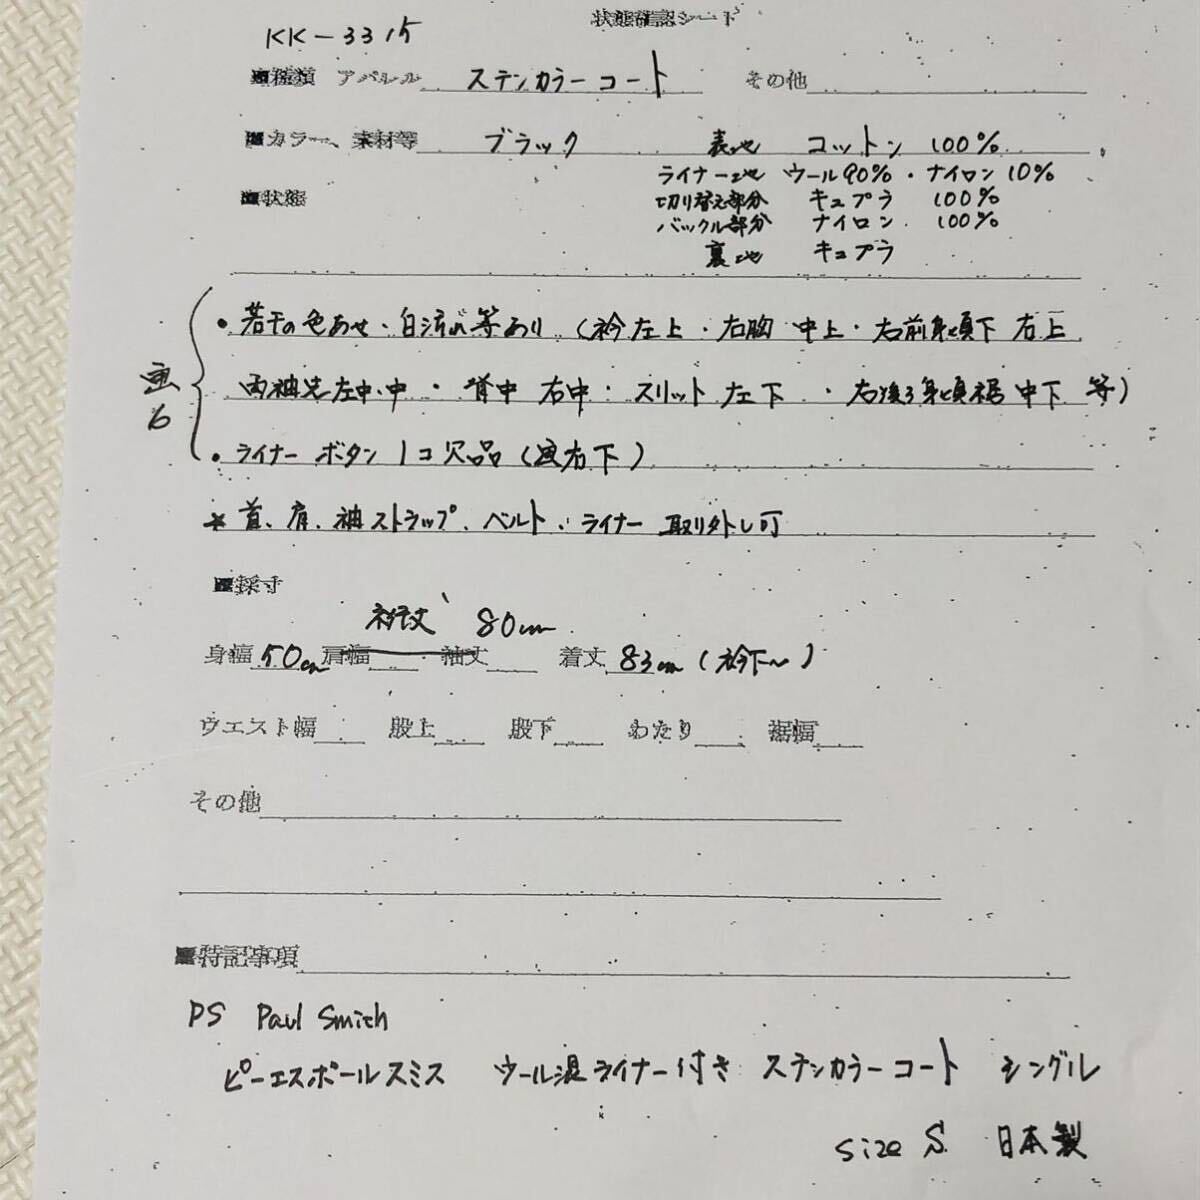 状態確認シート
KK-3315
■種類 アパレル ステンカラーコート その他
■カラー、素材等 ブラック 表地 コットン 100%
ライナー地 ウール90%・ナイロン10%
■状態 切り替え部分 キュプラ 100%
バックル部分 ナイロン 100%
裏地 キュプラ
・若干の色あせ・白流れ等あり(衿左上・右胸 中上・右前身頃下 右上
両袖先左中、中・背中 右中・スリット 左下・右後ろ身頃裾 中下 等)
画6
・ライナー ボタン 1コ欠品(画右下)
* 首、肩、袖ストラップ、ベルト、ライナー 取り外し可
■採寸
裄丈 80cm
身幅 50cm 肩幅 袖丈 着丈 83cm(衿下〜)
ウエスト幅 股上 股下 わたり 裾幅
その他
■特記事項
PS Paul Smith
ピーエスポールスミス ウール混ライナー付き ステンカラーコート シングル
size S 日本製